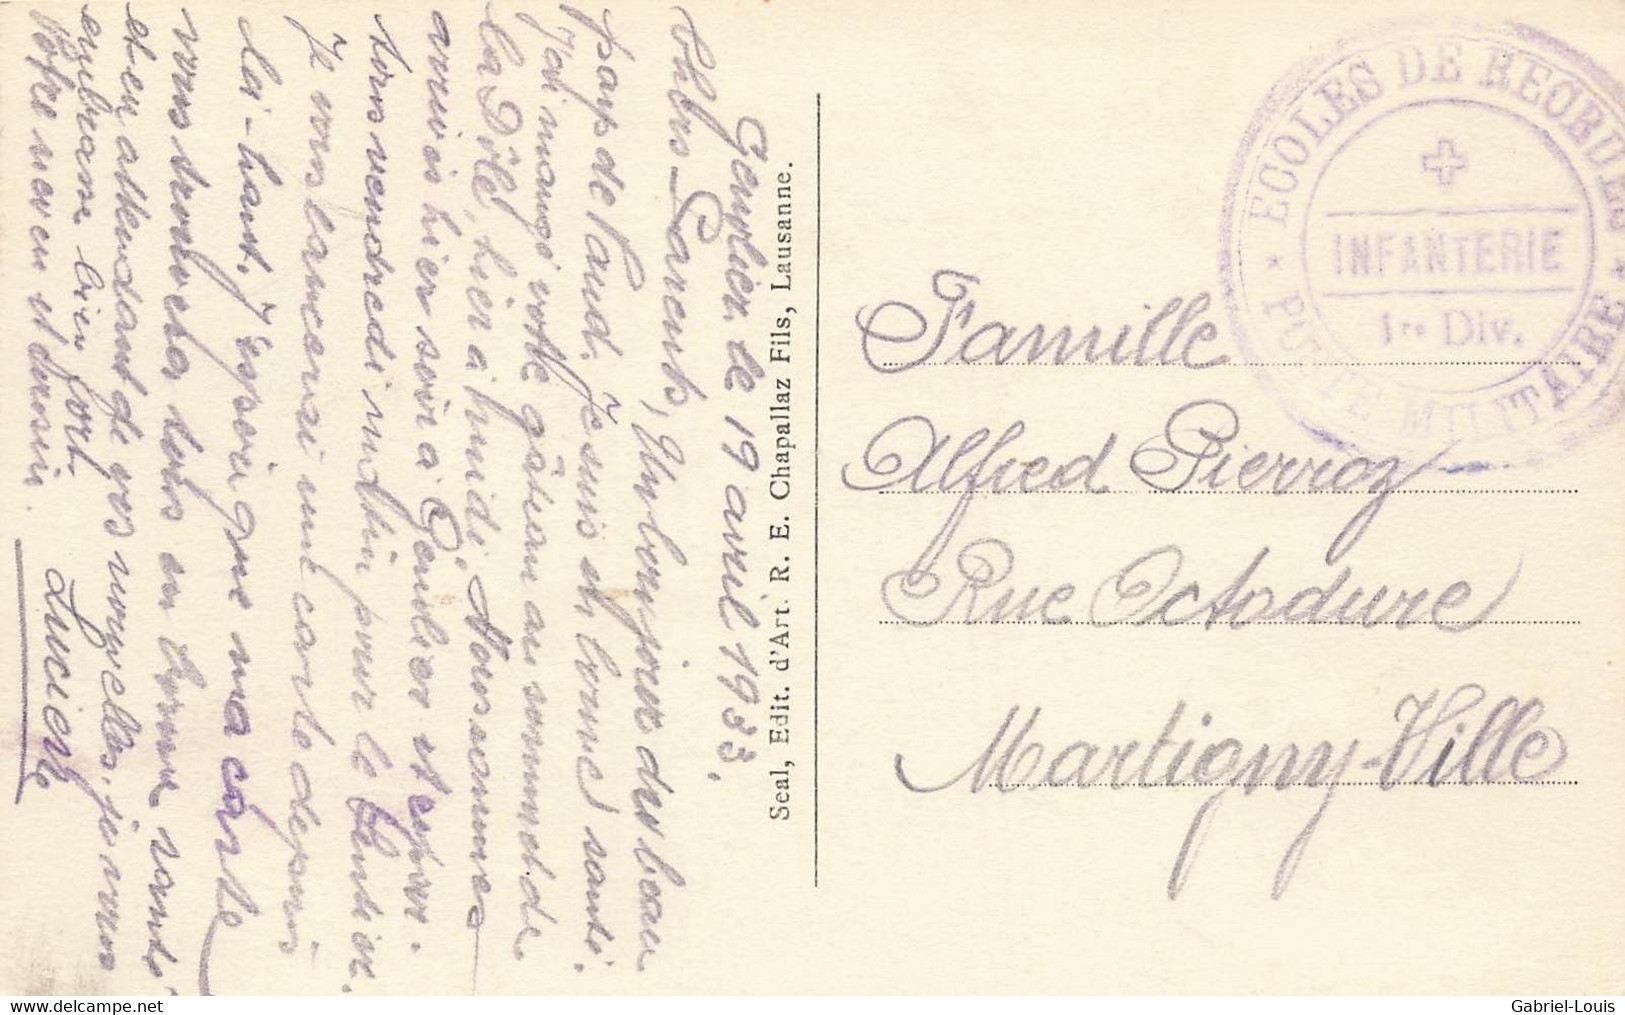 Genolier le 19 avril 1933.
Chers Parents, Un bonjour du beau
pays de Vaud. Je suis et bonne santé.
J'ai mangé votre gâteau au sommet de
la Dôle, hier à midi. Nous sommes
arrivés hier soir à Genolier et
tons vendredi matin pour le
Je vous lancerai une carte depuis
là-haut. J'espère que ma carte
vous trouvera tous en bonne santé
et en attendant de vos nouvelles, je vous
embrasse bien fort.
Votre neveu et cousin. Lucien
Seal, Edit. d'Art. R. E. Chapallaz Fils, Lausanne.
ECOLES DE RECRUES
INFANTERIE
1re Div.
POSTE MILITAIRE
Famille
Alfred Pierroz
Rue Octodure
Martigny-Ville
www.delcampe.net
Gabriel-Louis